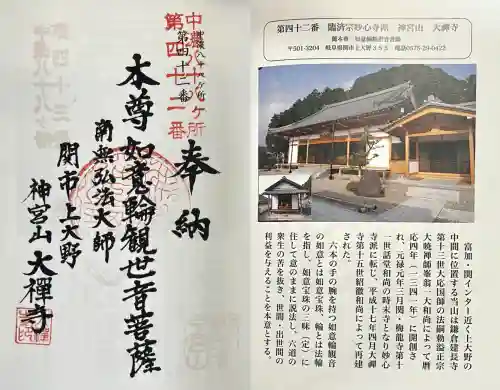 奉納
中濃八十八ヶ所
第四十二番
第四十二番
本尊 如意輪観世音菩薩
南無弘法大師
関市上大野
神宮山 大禪寺
第四十二番 臨済宗妙心寺派 神宮山 大禪寺
御本尊 如意輪観世音菩薩
〒501-3204 岐阜県関市上大野365 電話0575-29-0422
富加・関インター近く上大野の
中間に位置する当山は鎌倉建長寺
第十三世大応国師の法嗣勅謚正宗
大暁禅師峯翁一大和尚によって暦
応四年(一三四一年)に開創さ
れ、元禄元年三月関・梅龍寺第十
一世話堂和尚の時末寺となり妙心
寺派に転じ、平成十七年四月大禅
寺第十五世紹徹和尚によって再建
された。
六本の手の腕を持つ如意輪観音
の如意とは如意宝珠、輪とは法輪
を指し、如意宝珠の三昧(定)に
住して意のままに説法し、六道の
衆生の苦を抜き、世間・出世間の
利益を与えることを本意とする。